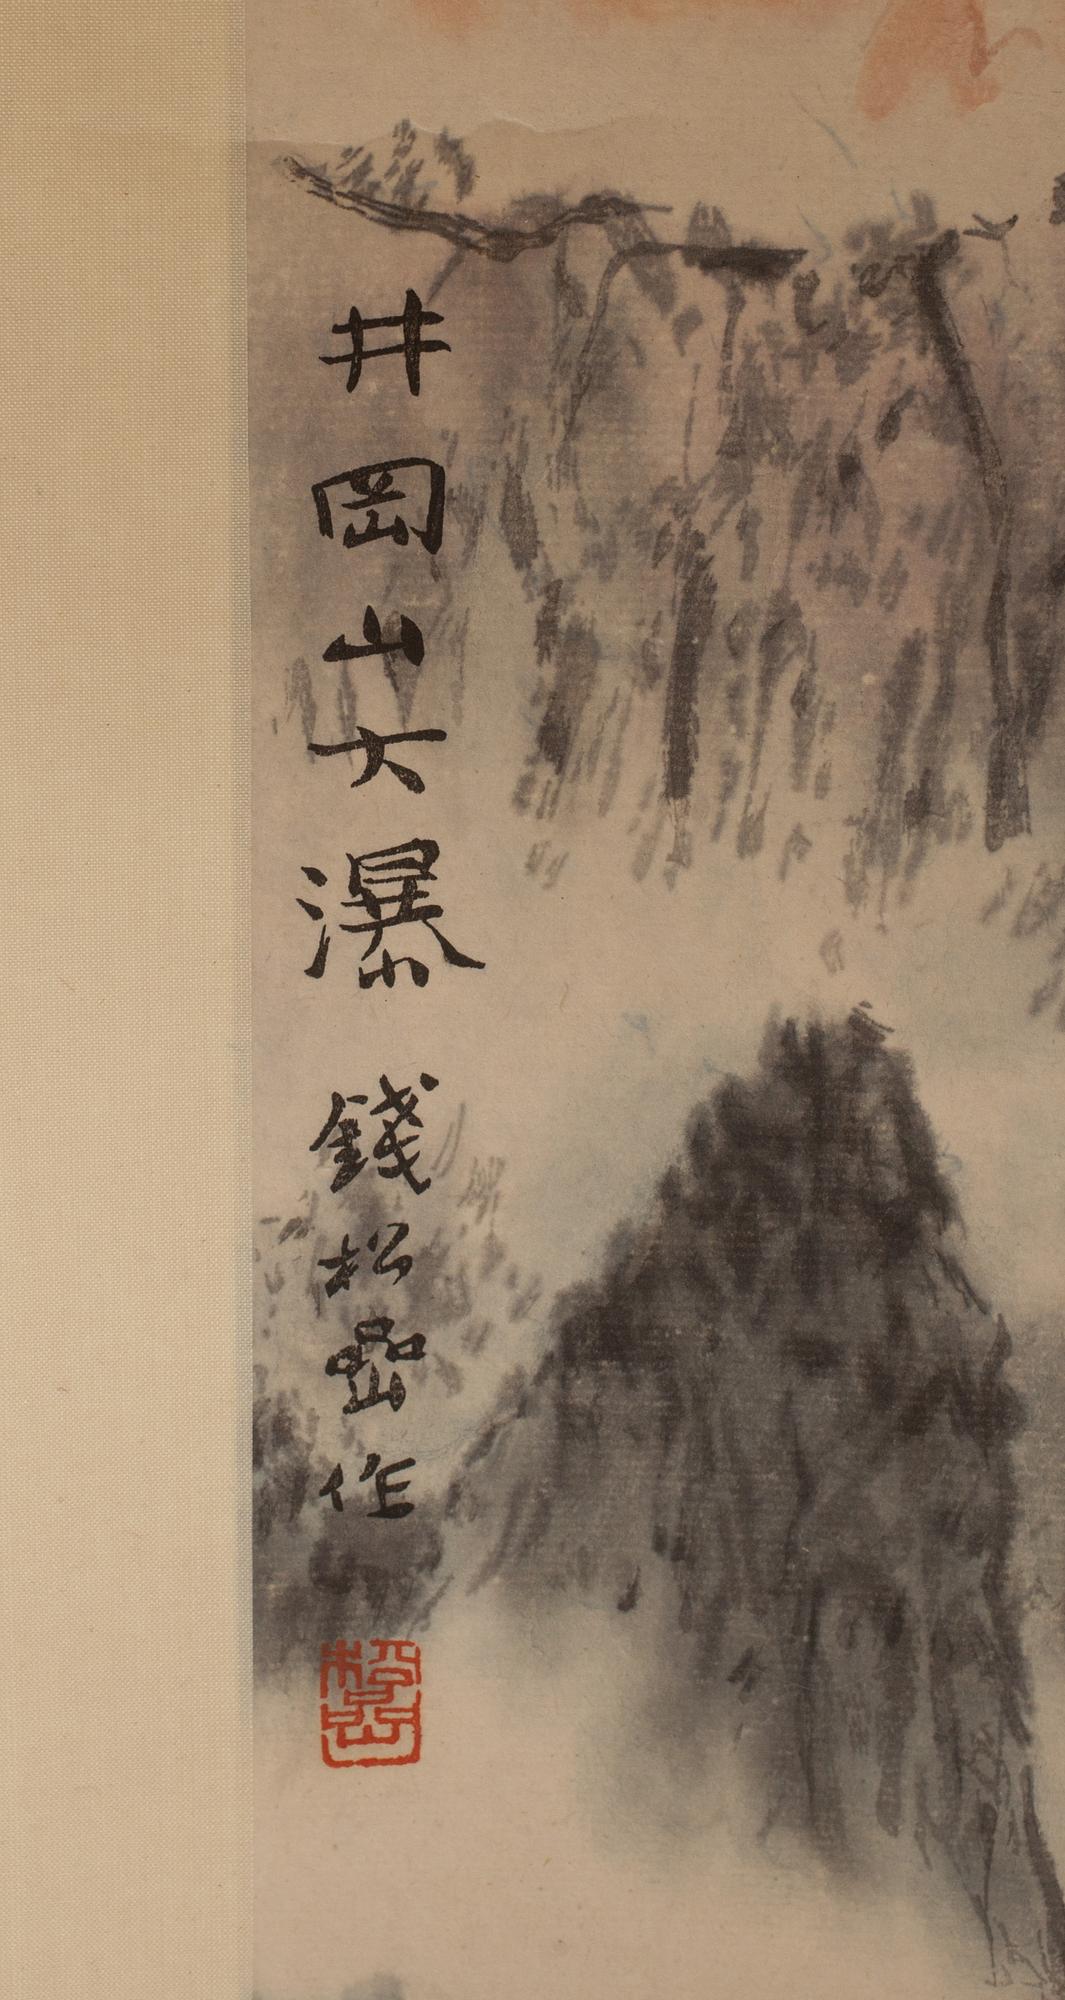 井岡山大瀑 錢松嵒作
松嵒